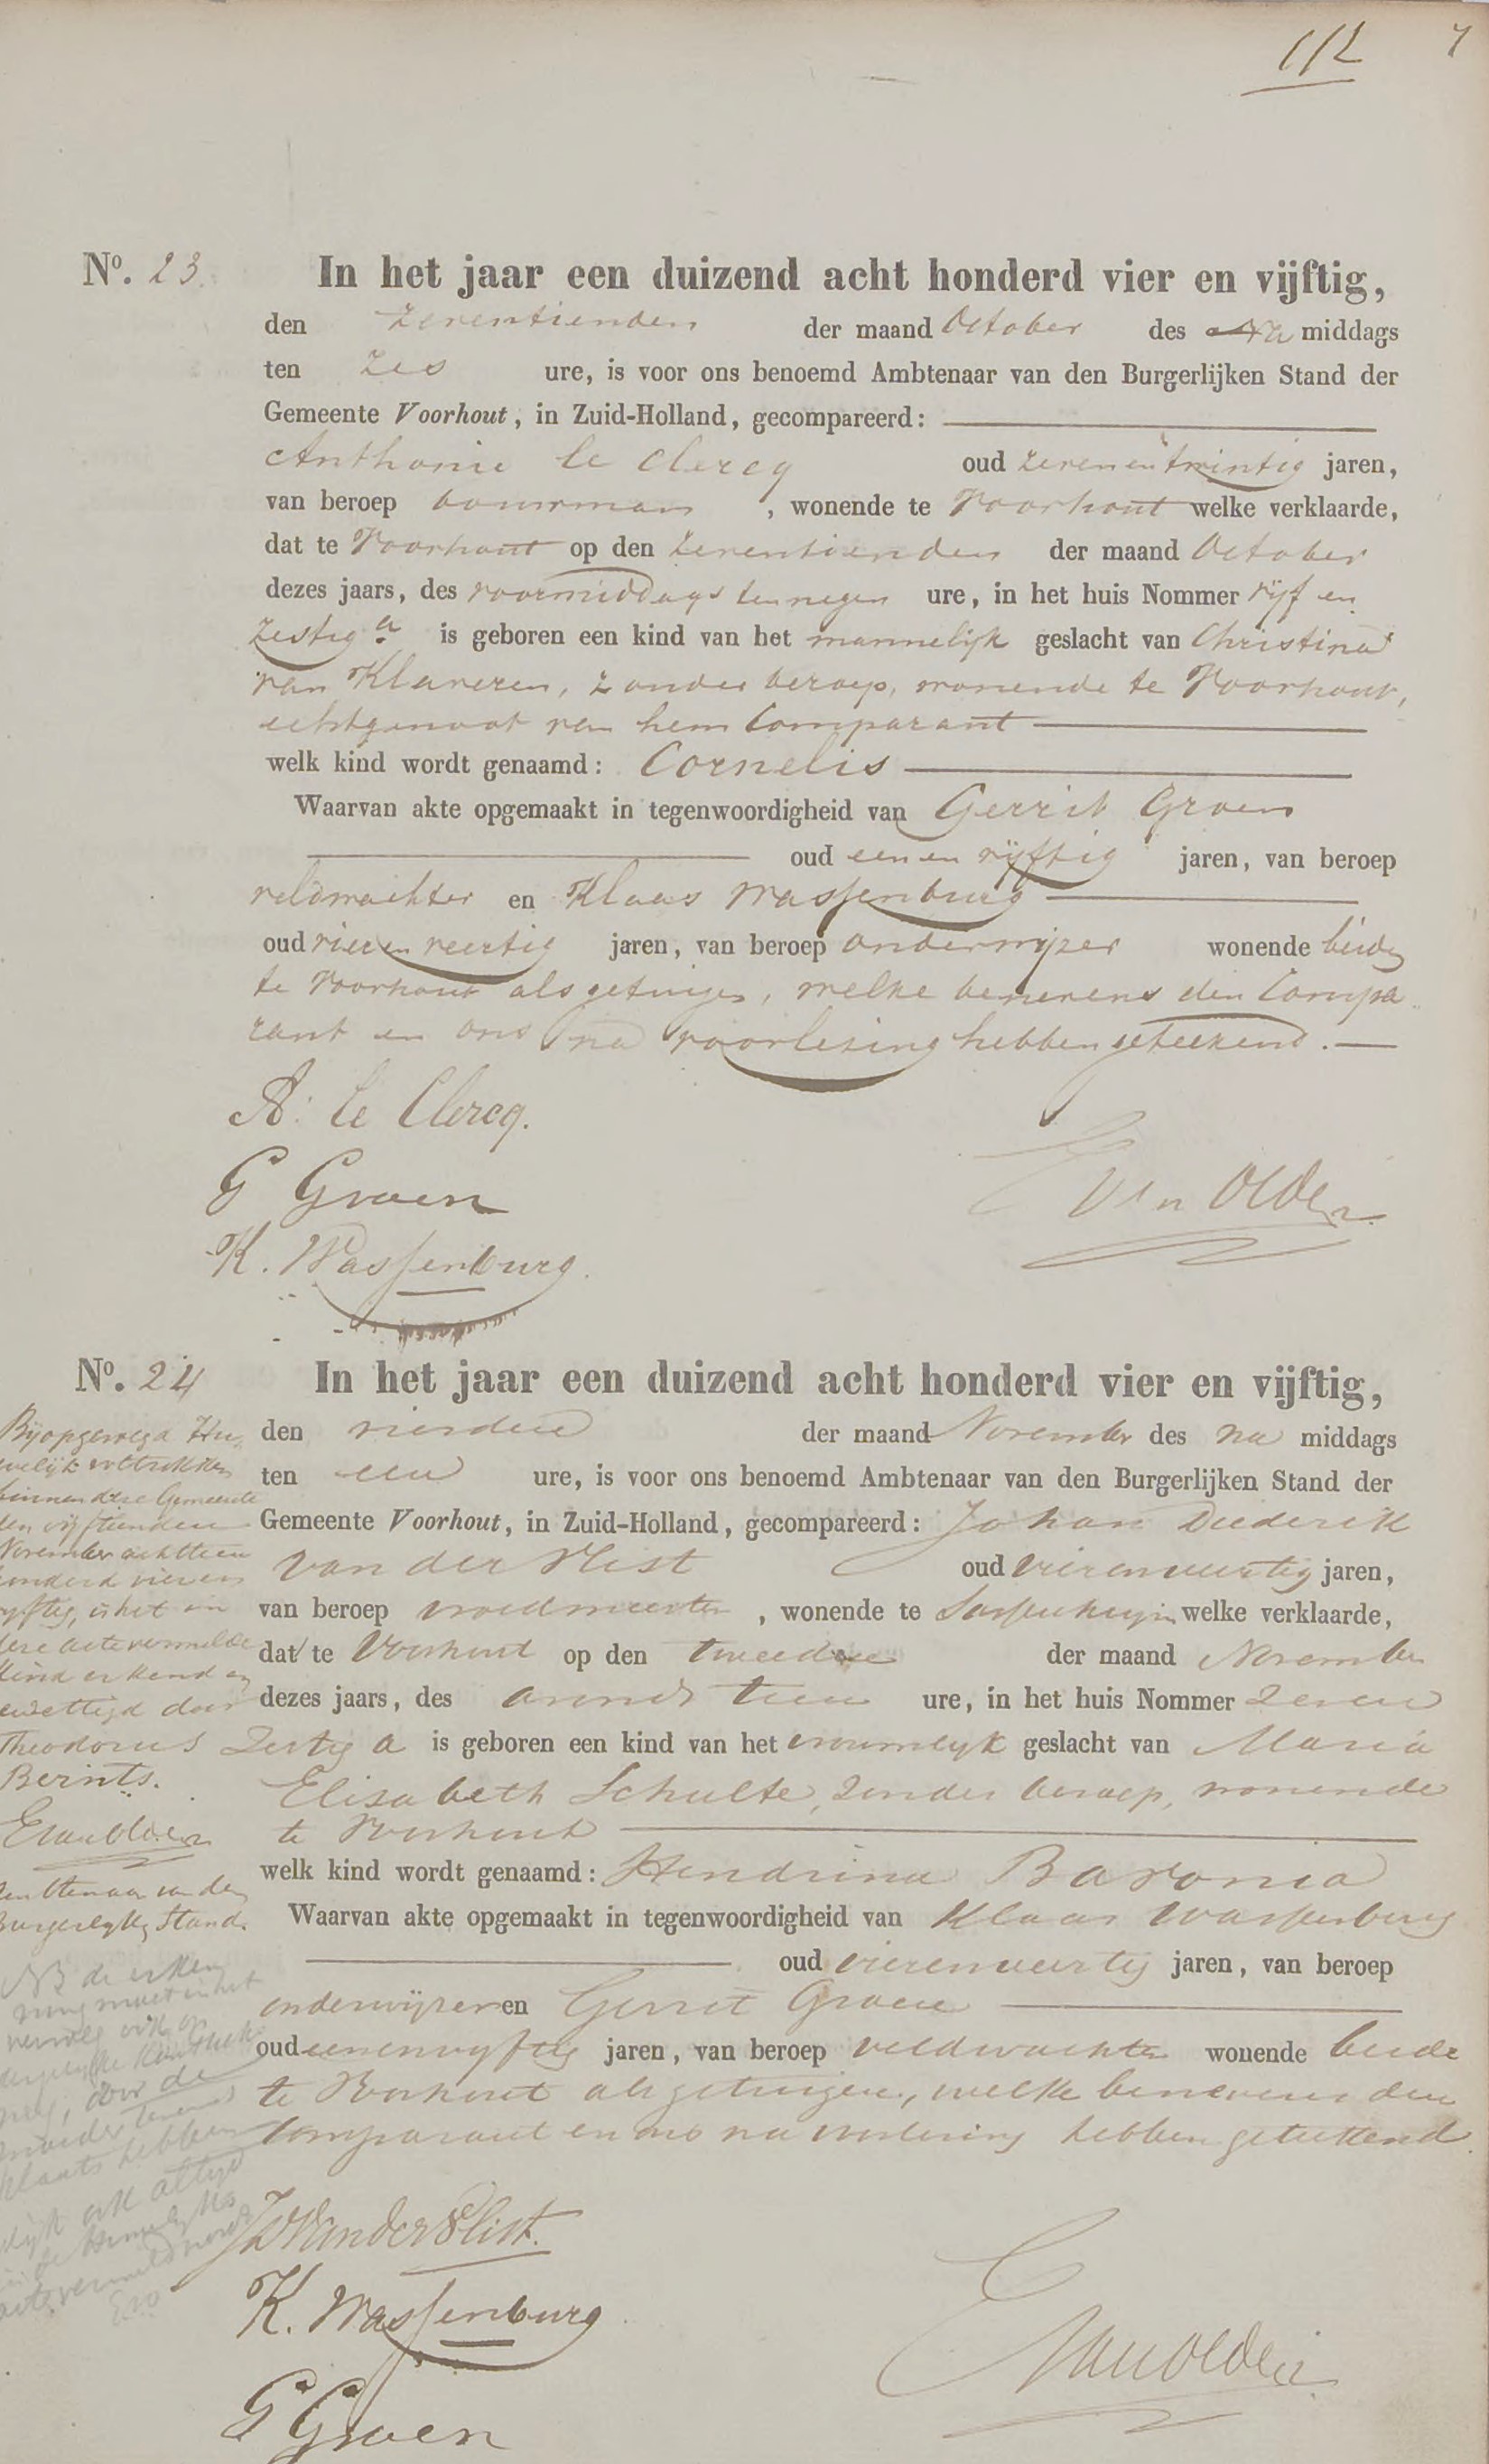 112
7
Nº. 23. In het jaar een duizend acht honderd vier en vijftig,
den zeventienden der maand October des na middags
ten zes ure, is voor ons benoemd Ambtenaar van den Burgerlijken Stand der
Gemeente Voorhout, in Zuid-Holland, gecompareerd:
Anthonie le Clercq oud zevenentwintig jaren,
van beroep bouwman, wonende te Voorhout welke verklaarde,
dat te Voorhout op den zeventienden der maand October
dezes jaars, des voormiddags ten negen ure, in het huis Nommer vijf en
zestig a is geboren een kind van het mannelijk geslacht van Christina
van Klaveren, zonder beroep, wonende te Voorhout,
echtgenoot van hem Comparant
welk kind wordt genaamd: Cornelis
Waarvan akte opgemaakt in tegenwoordigheid van Gerrit Groen
oud een en vijftig jaren, van beroep
veldwachter en Klaas Wassenburg
oud vier en veertig jaren, van beroep onderwijzer wonende beiden
te Voorhout als getuigen, welke benevens den Compa
rant en ons na voorlezing hebben geteekend.
A: le Clercq.
G Groen
van Olden
K. Wassenburg.
Nº. 24 In het jaar een duizend acht honderd vier en vijftig,
den vierden der maand November des na middags
ten een ure, is voor ons benoemd Ambtenaar van den Burgerlijken Stand der
Gemeente Voorhout, in Zuid-Holland, gecompareerd: Johan Diederik
van der Slist oud vierenveertig jaren,
van beroep vroedmeester, wonende te Sassenheim welke verklaarde,
dat te Voorhout op den tweeden der maand November
dezes jaars, des avonds tien ure, in het huis Nommer zeven
Zestig a is geboren een kind van het vrouwelyk geslacht van Maria
Elisabeth Schulte, zonder beroep, wonende
te Voorhout
welk kind wordt genaamd: Hendrina Baronia
Waarvan akte opgemaakt in tegenwoordigheid van Klaas Wassenburg
oud vierenveertig jaren, van beroep
onderwijzer en Gerrit Groen
oud eenenvyftig jaren, van beroep veldwachter wonende beide
te Voorhout als getuigen, welke benevens den
Comparant en ons na voorlezing hebben geteekend.
JD van der Slist.
K. Wassenburg
E van Olden
G Groen
By opgevolgd Hu
welijk voltrokken
binnen deze Gemeente
den vijftienden
November achttien
honderd vier en
vyftig, is het in
deze acte vermelde
kind erkend en
gewettigd door
Theodorus
Berints.
E van Olden
Ambtenaar van den
Burgerlyke Stand.
NB de erken
ning moet in het
vervolg ook op
door de
moeder
plaats hebben
ook altijd
in de Huwelijks
acte vermeld word
EvO